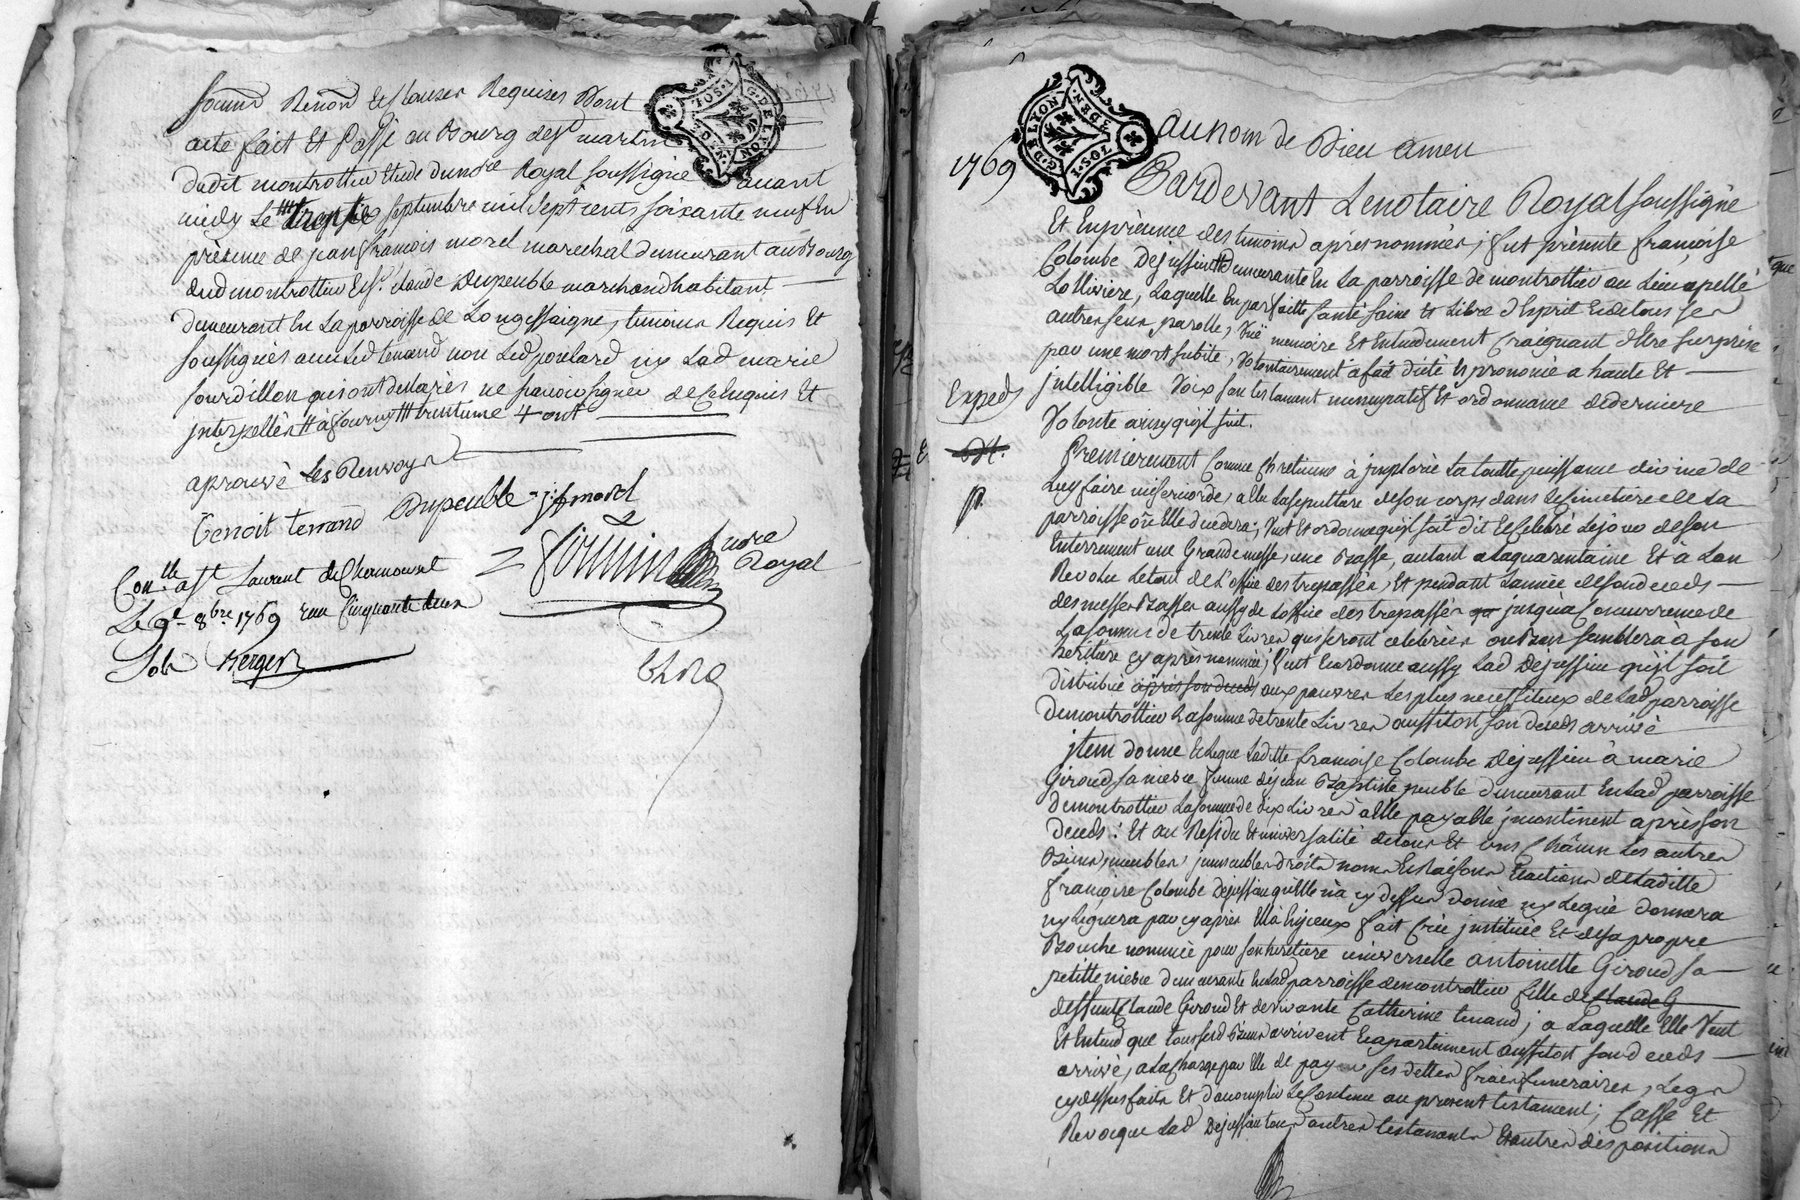 soumis Renon Et Clauses Requises Dont
acte fait Et Passé au Bourg de St martin
dudit montrottier Etude dunore Royal soussigné avant
midy Le septembre mil sept cent soixante neuf En
présence de jean francois morel marechal demeurant au Bourg
dud montrottier Et Sr. claude Dupeuble marchand habitant
demeurant En La parroisse de Longessaigne, temoins Requis Et
soussignés avec Led terrand non Led poulard ny Lad marie
sourdillon qui ont declarés ne scavoir signer de ce Enquis Et
interpellés
aprouvé Les Renvoys
Benoit terrand Dupeuble j: f. morel
nore
Royal
Conlle a St Laurent de Chamousset
Le 9e 8bre 1769 reçu Cinquante deux
Sols Berger
G. DE LYON
2 DEN
1769
G. DE LYON
2 DEN
au nom de Dieu amen
Pardevant Le notaire Royal soussigné
Et En présence des temoins après nommés, fut présente francoise
Colombe Dejussieu demeurante En La parroisse de montrottier au Lieu apellé
Lollivière, Laquelle En parfaitte santé saine Et Libre d'Esprit Et de tous ses
autres sens parolle, Vüe memoire Et Entendement Craignant d'être surprise
par une mort subite, Volontairement à fait dicté Et prononcé a haute Et
jntelligible Voix son testament nuncupatif Et ordonnance de derniere
Volonte ainsy qu'jl suit.
Exped
Premierement Comme Chretienne à jmploré La toutte puissance divine de
Luy faire misericorde, a Elu La sepulture de son corps dans Le simetière de La
parroisse où Elle decedera; Veut Et ordonne qu'jl soit dit Et Celebré Le jour de son
Enterrement une Grande messe, une Basse, autant a La quarantaine Et à L'an
Revolu Le tout de L'office des trepassés, Et pendant L'année de son deceds
des messes Basses aussy de L'office des trepassés jusqu'a Concurrence de
La somme de trente Livres qui seront celebrées ou Bon semblera à son
heritiere cy après nommée; Veut Et ordonne aussy Lad Dejussieu qu'jl soit
distribué après son deceds aux pauvres Les plus necessiteux de Lad parroisse
de montrottier La somme de trente Livres aussitost son deceds arrivé
jtem donne Et Legue Laditte francoise Colombe Dejussieu à marie
Giroud sa niesce femme de jean Baptiste peuble demeurant En Lad parroisse
de montrottier La somme de dix Livres à Elle payable jncontinent après son
deceds: Et au Residu Et universalité de tous Et uns Châcun Les autres
Biens, meubles, jmmeubles droits noms Et Raisons Et actions de Laditte
francoise Colombe Dejussieu qu'Elle n'a cy dessus donné ny Legué donnera
ny Leguera par cy après Elle à fait Crée jnstituée Et de sa propre
Bouche nommée pour son heretiere universelle antoinette Giroud sa
petitte niesce demeurante En Lad parroisse de montrottier fille de Claude G
deffunt Claude Giroud Et de vivante Catherine terrand; a Laquelle Elle Veut
Et Entend que tous sesd Biens arrivent Et apartiennent aussitost son deceds
arrivé, a La Charge par Elle de payer ses dettes frais funeraires, Legs
cy dessus faits Et d'accomplir Le Contenu au present testament; Casse Et
Revoque Lad Dejussieu tous autres testaments Et autres dispositions